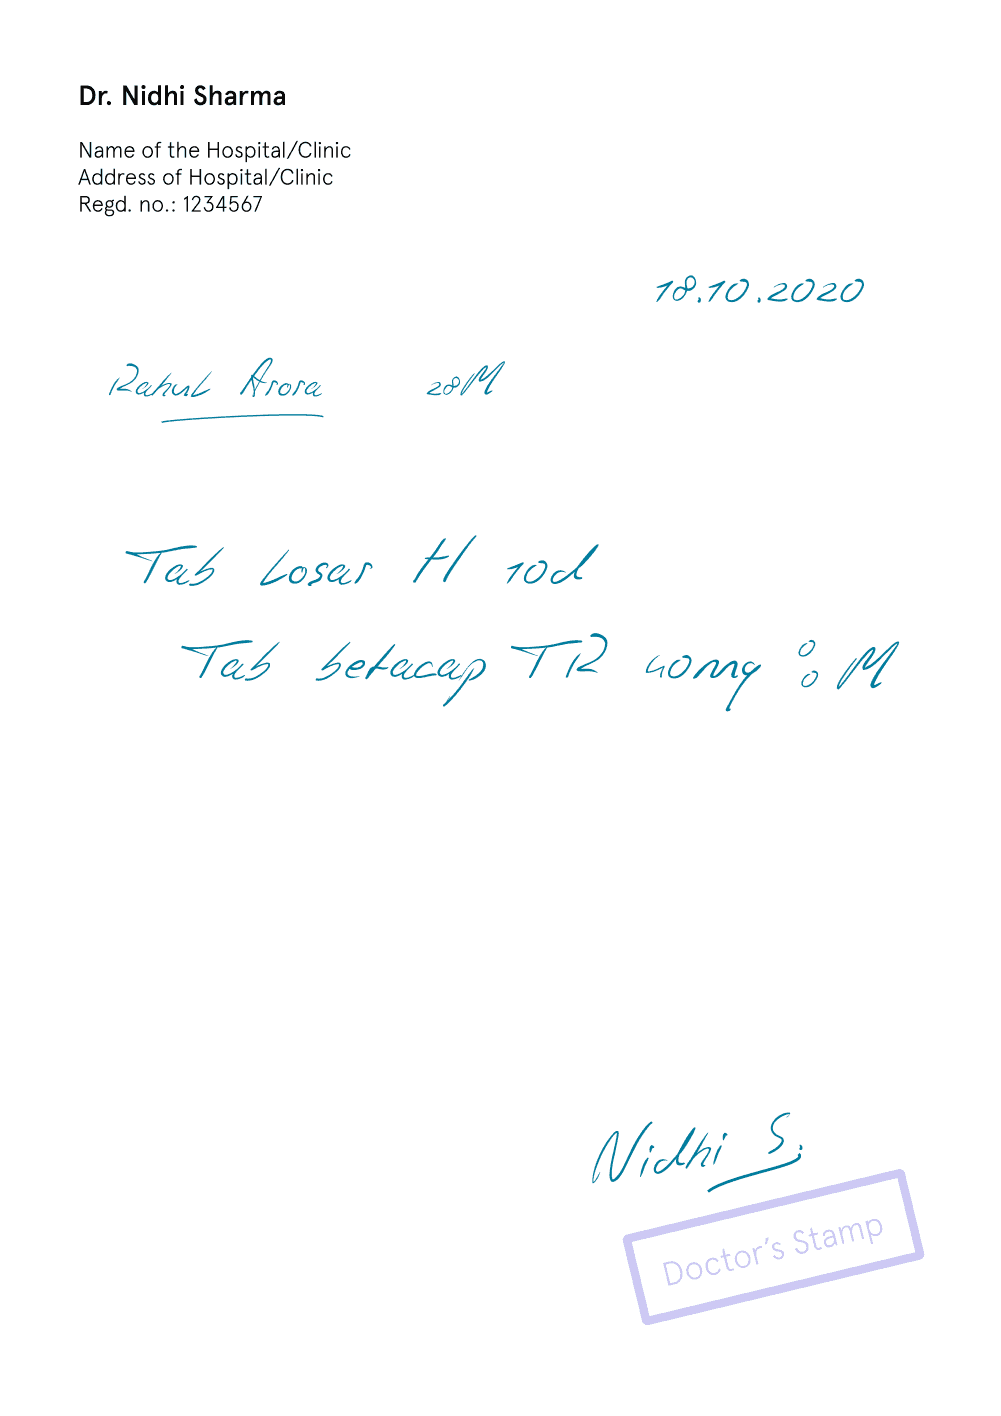 Dr. Nidhi Sharma
Name of the Hospital/Clinic
Address of Hospital/Clinic
Regd. no.: 1234567
18.10.2020
Rahul Arora 28M
Tab Losar H 10d
Tab betacap TR 40mg : M
Nidhi S.
Doctor's Stamp